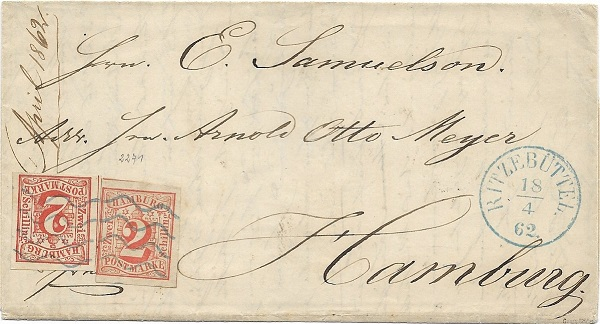 April 1862.
Hrn. E. Samuelson.
Adr. Hrn. Arnold Otto Meyer
2271
RITZEBÜTTEL
18
4
62
Hamburg.
HAMBURG
POSTMARKE
2
HAMBURG
POSTMARKE
2